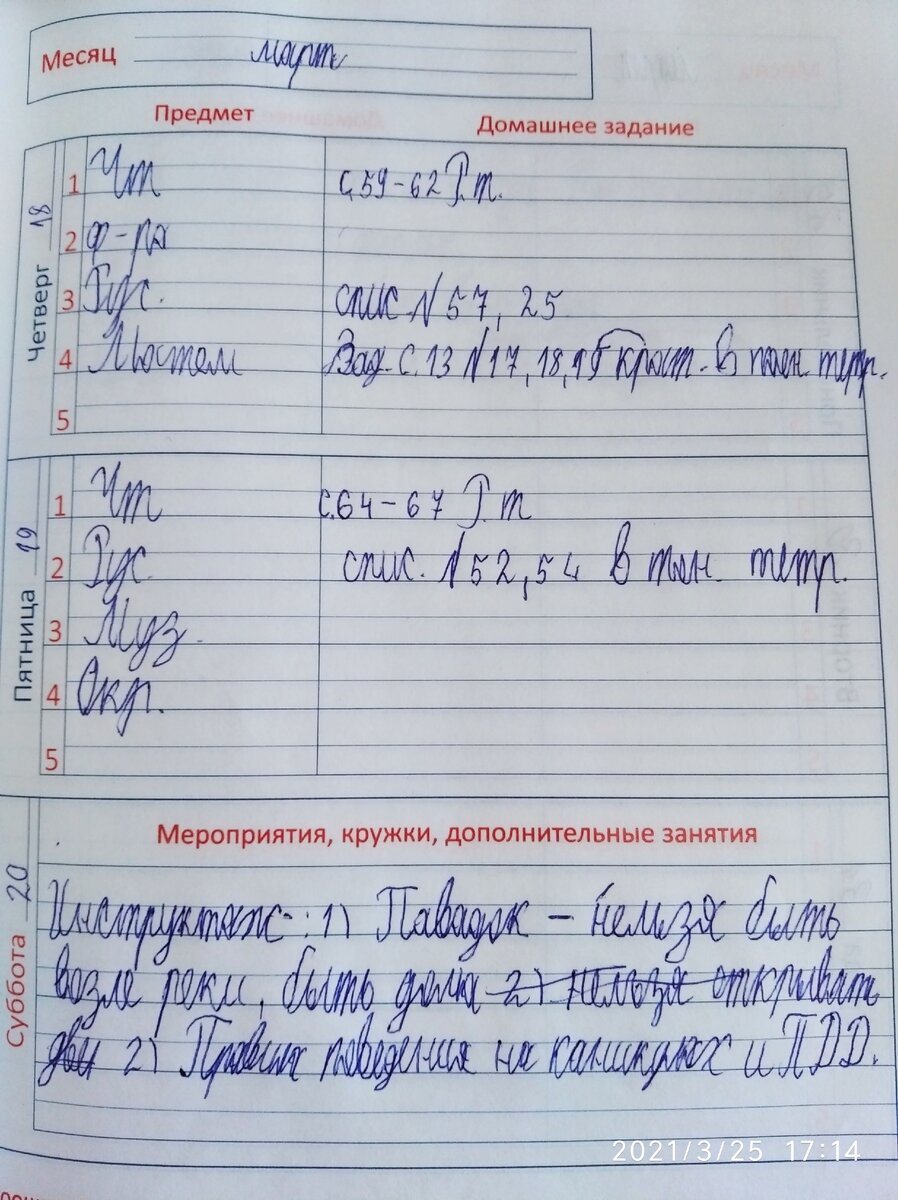 Месяц март
Предмет Домашнее задание
Четверг 18
1 Чт с.59-62 Р.т.
2 Ф-ра
3 Рус. спис. №57, 25
4 Матем Зад. с.13 №17, 18, в тон. тетр.
5
Пятница 19
1 Чт с.64-67 Р.т
2 Рус. спис. №52, 54 в тон. тетр.
3 Муз.
4 Окр.
5
Суббота 20
Мероприятия, кружки, дополнительные занятия
Инструктаж: 1) Паводок - нельзя быть
возле реки, быть дома 2) нельзя открывать
две 2) Правила поведения на каникулах и ПДД.
2021/3/25 17:14